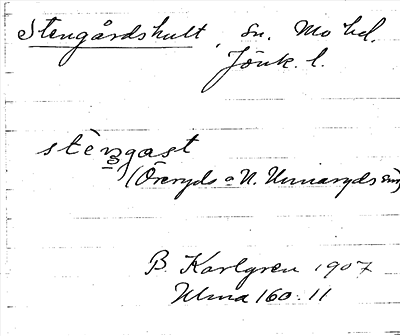 Stengårdshult, sn. Mo hd.
Jönk. l.
stèngast
(Öreryds o N. Unnaryds snr)
B. Karlgren 1907
Ulma 160:11